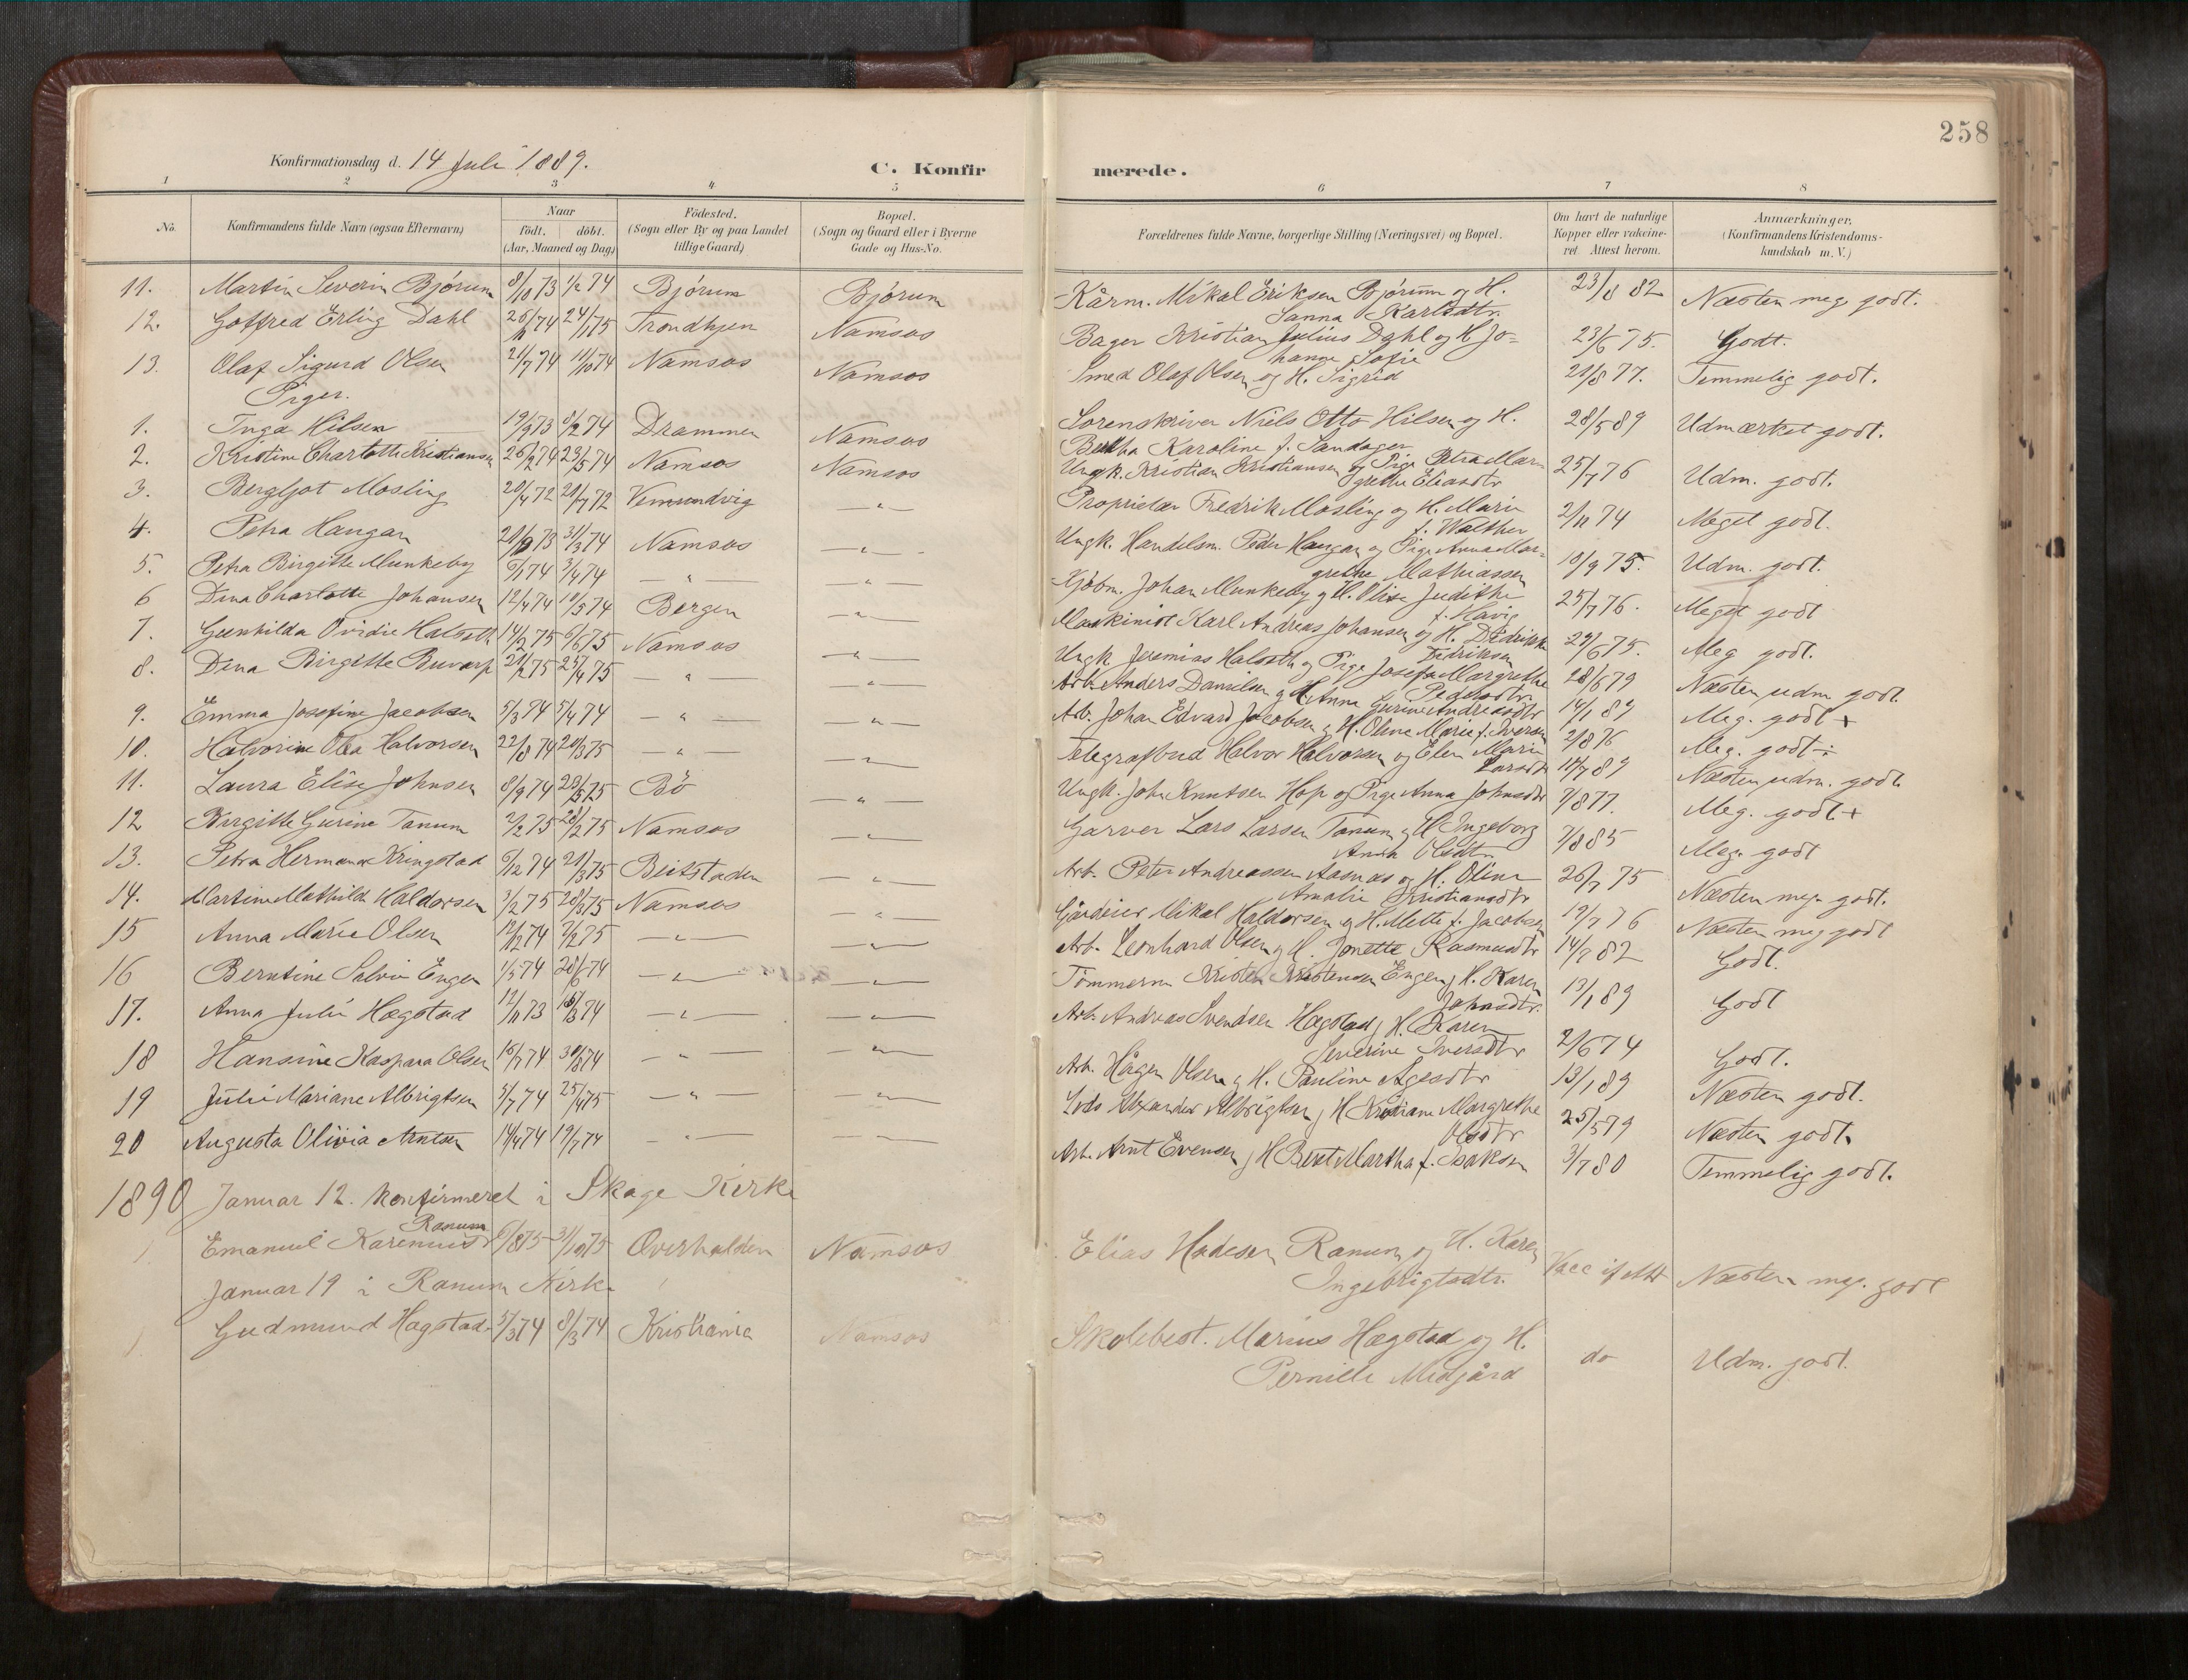 258
Konfirmationsdag d. 14 Juli 1889.
C. Konfirmerede.
1 2 3 4 5 6 7 8
No. Konfirmandens fulde Navn (ogsaa Efternavn) Naar født. døbt. (Aar, Maaned og Dag) Födested. (Sogn eller By og paa Landet tillige Gaard) Bopæl. (Sogn og Gaard eller i Byerne Gade og Hus-No. Forældrenes fulde Navne, borgerlige Stilling (Næringsvei) og Bopæl. Om havt de naturlige Kopper eller vakcineret. Attest herom. Anmærkninger. (Konfirmandens Kristendomskundskab m. V.)
11. Martin Severin Bjørum 8/10 73 1/2 74 Bjørum Bjørum Kårm. Mikal Eriksen Bjørum og H. Sanna Karlsdtr. 23/8 82 Næsten meg. godt.
12. Gotfred Erling Dahl 26/11 74 24/1 75 Trondhjem Namsos Bager Kristian Julius Dahl og H. Johanne Sofie 23/6 75. Godt.
13. Olaf Sigurd Olsen 21/7 74 11/10 74 Namsos Namsos Smed Olaf Olsen og H. Sigrid 21/8 77. Temmelig godt.
Piger.
1. Inga Hilsen 19/9 73 8/2 74 Drammen Namsos Sorenskriver Niels Otto Hilsen og H. Bertha Karoline f. Sandager 28/5 89 Udmærket godt.
2. Kristine Charlotte Kristiansen 26/2 74 23/5 74 Namsos Namsos Ungk. Kristian Kristiansen og Pige Petra Margrethe Eliasdtr 25/7 76 Udm. godt.
3. Bergljot Mosling 20/4 72 21/7 72 Vemundvig — " — Proprietær Fredrik Mosling og H. Marie f. Walther 2/11 74 Meget godt.
4. Petra Haugan 21/10 73 31/3 74 Namsos — " — Ungk. Handelsm. Peder Haugan og Pige Anna Margrethe Mathiassen 10/9 75. Udm. godt.
5. Petra Birgitte Munkeby 6/1 74 3/4 74 — " — — " — Kjøbm. Johan Munkeby og H. Olise Judithe f. Havig 25/7 76. Meget godt
6 Dina Charlotte Johansen 12/4 74 10/5 74 Bergen — " — Maskinist Karl Andreas Johansen og H. Didrikke Didriksen 29/6 75. Meg godt.
7. Gunhilda Ovidie Halseth 14/2 75 6/6 75 Namsos — " — Ungk. Jeremias Halseth og Pige Josefa Margrethe Pedersdtr. 28/6 79 Næsten udm. godt.
8. Dina Birgitte Buvarp 21/1 75 25/4 75 — " — — " — Arb. Anders Danielsen og H. Anna Gurine Andreasdtr 14/1 89 Meg. godt +
9. Emma Josefine Jacobsen 5/3 74 5/4 74 — " — — " — Arb. Johan Edvard Jacobsen og H. Oline Marie f. Iversen 2/8 76 Meg. godt ÷
10. Halvorine Olea Halvorsen 22/8 74 20/3 75 — " — — " — Telegrafbud Halvor Halvorsen og Elen Marie Larsdtr 14/7 89 Næsten udm. godt.
11. Laura Elise Johnsen 8/9 74 23/5 75 Bö — " — Ungk. John Knutsen Hop og Pige Anna Johnsdtr 7/8 77. Meg. godt +
12 Birgitte Gurine Tanum 2/2 75 28/2 75 Namsos — " — Garver Lars Larsen Tanum og H. Ingeborg Anna Olsdtr 7/8 85 Meg. godt
13. Petra Hermana Kringstad 6/12 74 21/3 75 Beitstaden — " — Arb. Peter Andreassen Aasnæs og H. Oline Amalie Kristiansdtr 26/7 75 Næsten meg. godt.
14. Martine Mathilde Haldorsen 3/2 75 28/3 75 Namsos — " — Gårdeier Mikal Haldorsen og H. Mette f. Jacobsen 19/7 76 Næsten meg godt
15 Anna Marie Olsen 12/12 74 7/2 75 — " — — " — Arb. Leonhard Olsen og H. Jonette Rasmusdtr 14/7 82 Godt.
16 Berntine Salvie Engen 1/5 74 28/6 74 — " — — " — Tömmerm. Kristen Kristensen Engen og H. Karen Johnsdtr. 13/1 89 Godt
17. Anna Julie Hægstad 12/11 73 15/3 74 — " — — " — Arb. Andreas Svendsen Hægstad og H. Karen Severine Iversdtr 2/6 74 Godt.
18 Hansine Kaspara Olsen 16/7 74 30/8 74 — " — — " — Arb. Hågen Olsen og H. Pauline Agesdtr 13/1 89 Næsten godt.
19 Julie Mariane Albrigtsen 5/7 74 25/4 75 — " — — " — Lods Alexander Albrigtsen og H Kristiane Margrethe Olsdtr 25/5 79 Næsten godt.
20 Augusta Olivia Arntsen 14/4 74 19/7 74 — " — — " — Arb. Arnt Evensen og H Beret Martha f. Isaksen 3/7 80 Temmelig godt.
1890 Januar 12. konfirmeret i Skage Kirke
1 Emanuel Karenius Ranum 6/8 75 31/10 75 Overhalden Namsos Elias Hadesen Ranum og H. Karen Ingebrigtsdtr. Vacc if Att Næsten meg. godt
Januar 19 i Ranum Kirke
1 Gudmund Hægstad 5/3 74 8/3 74 Kristiania Namsos Skolebest. Marius Hægstad og H. Pernille Midjård do Udm. godt.